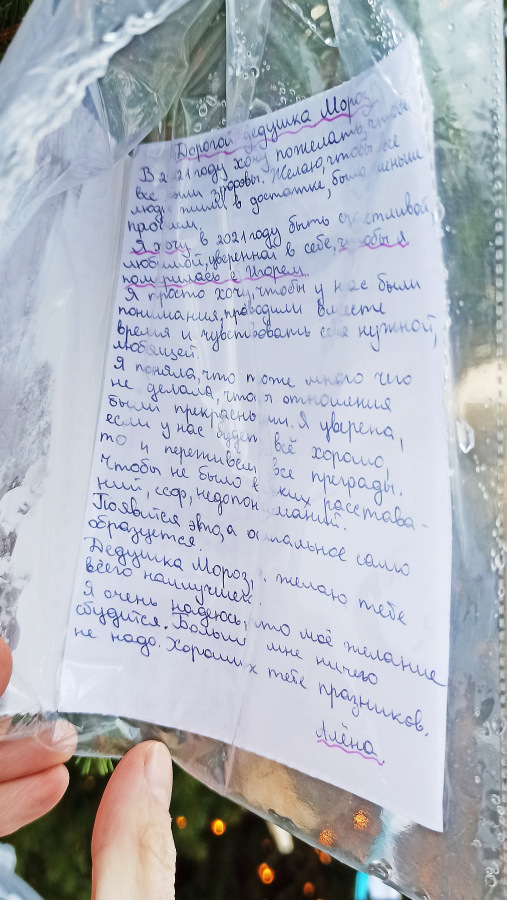 Дорогой дедушка Мороз
В 2021 году хочу пожелать, чтобы
все были здоровы. Желаю, чтобы все
люди жили в достатке, было меньше
проблем.
Я хочу в 2021 году быть счастливой,
любимой, уверенной в себе, чтобы я
помирилась с Игорем.
Я просто хочу, чтобы у нас были
понимания, проводили вместе
время и чувствовать себя нужной,
любящей.
Я поняла, что тоже много чего
не делала, чтоб отношения
были прекрасными. Я уверена,
если у нас будет всё хорошо,
то и переживём все преграды.
Чтобы не было расстава-
ний, ссор, недопониманий.
Появится это, а остальное само
образуется.
Дедушка Мороз, желаю тебе
всего наилучшего.
Я очень надеюсь, что моё желание
сбудится. Больше мне ничего
не надо. Хороших тебе празников.
Алёна